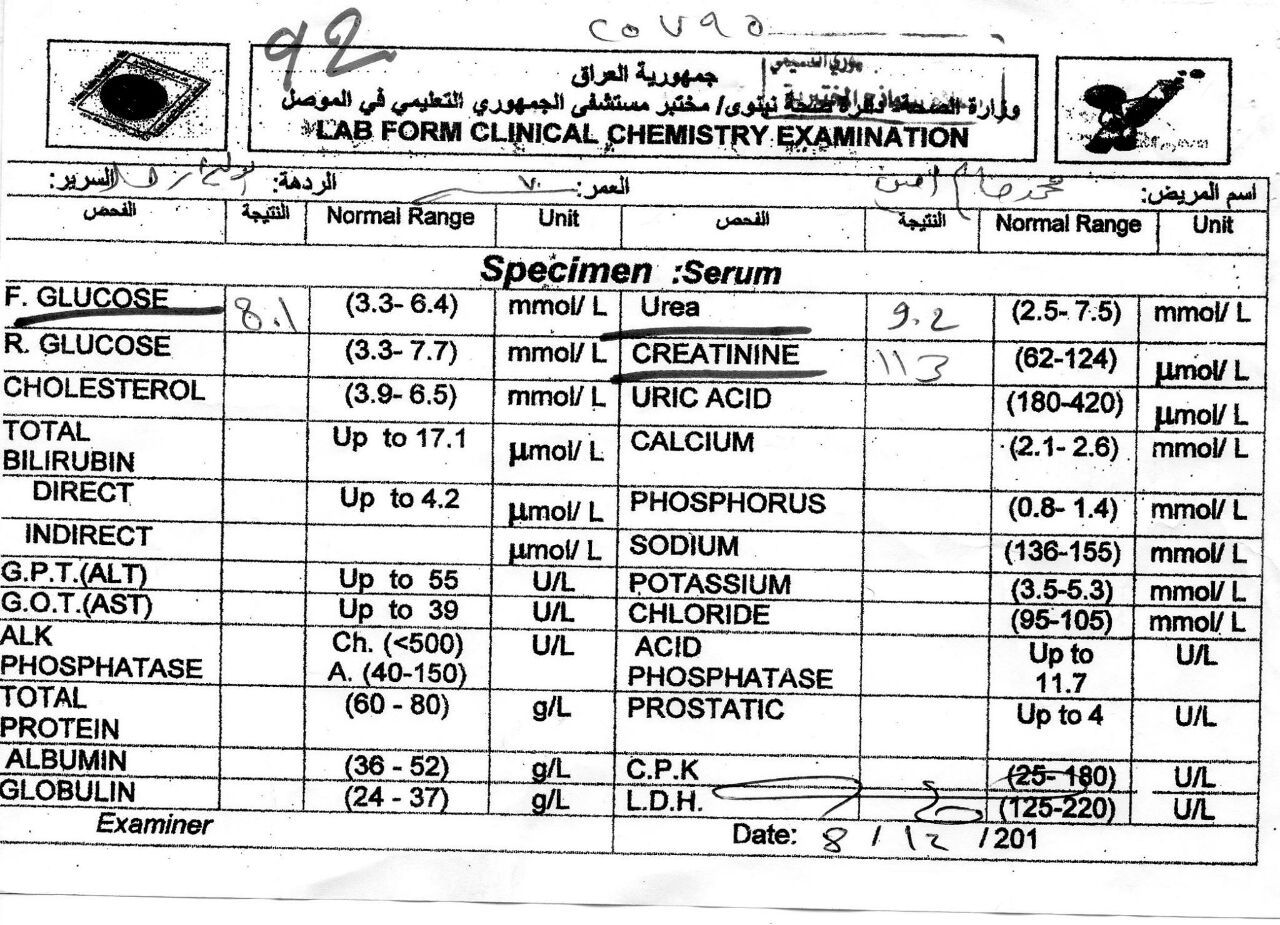 92
جمهورية العراق
وزارة الصحة/ دائرة صحة نينوى/ مختبر مستشفى الجمهوري التعليمي في الموصل
LAB FORM CLINICAL CHEMISTRY EXAMINATION
اسم المريض: محمد امين العمر: ٧٠ الردهة: السرير:
الفحص النتيجة Normal Range Unit الفحص النتيجة Normal Range Unit
Specimen :Serum
F. GLUCOSE 8.1 (3.3- 6.4) mmol/ L Urea 9.2 (2.5- 7.5) mmol/ L
R. GLUCOSE (3.3- 7.7) mmol/ L CREATININE 113 (62-124) µmol/ L
CHOLESTEROL (3.9- 6.5) mmol/ L URIC ACID (180-420) µmol/ L
TOTAL BILIRUBIN Up to 17.1 µmol/ L CALCIUM (2.1- 2.6) mmol/ L
DIRECT Up to 4.2 µmol/ L PHOSPHORUS (0.8- 1.4) mmol/ L
INDIRECT µmol/ L SODIUM (136-155) mmol/ L
G.P.T.(ALT) Up to 55 U/L POTASSIUM (3.5-5.3) mmol/ L
G.O.T.(AST) Up to 39 U/L CHLORIDE (95-105) mmol/ L
ALK PHOSPHATASE Ch. (<500) A. (40-150) U/L ACID PHOSPHATASE Up to 11.7 U/L
TOTAL PROTEIN (60 - 80) g/L PROSTATIC Up to 4 U/L
ALBUMIN (36 - 52) g/L C.P.K (25- 180) U/L
GLOBULIN (24 - 37) g/L L.D.H. (125-220) U/L
Examiner Date: 8 / 12 /201